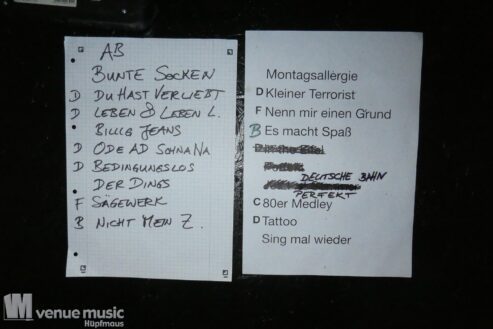 AB
BUNTE SOCKEN
D DU HAST VERLIEBT
D LEBEN & LEBEN L.
D BILLIG JEANS
D ODE AD SCHNANA
D BEDINGUNGSLOS
DER DINGS
F SÄGEWERK
B NICHT MEIN Z.
Montagsallergie
D Kleiner Terrorist
F Nenn mir einen Grund
B Es macht Spaß
DEUTSCHE BAHN
PERFEKT
C 80er Medley
D Tattoo
Sing mal wieder
venue music
Hüpfmaus